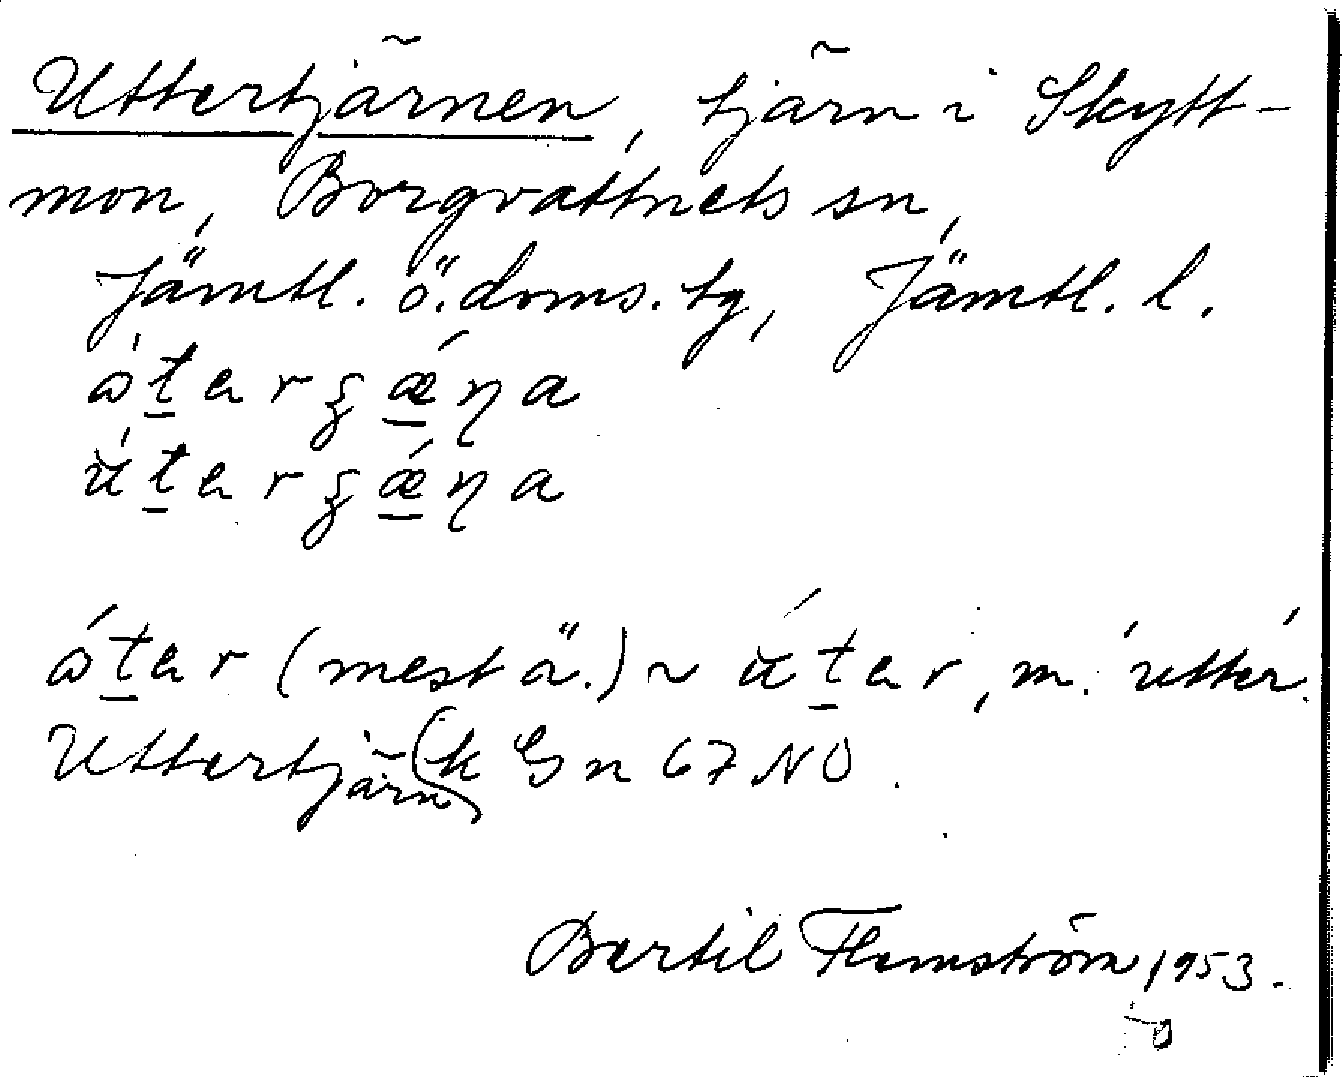 Uttertjärnen, tjärn i Skytt-
mon, Borgvattnets sn,
Jämtl. ö. doms. tg, Jämtl. l.
ater (mest ä.) ~ uter, m. 'utter'.
Uttertjärn (k Gn 67 NO.
Bertil Flemström 1953.